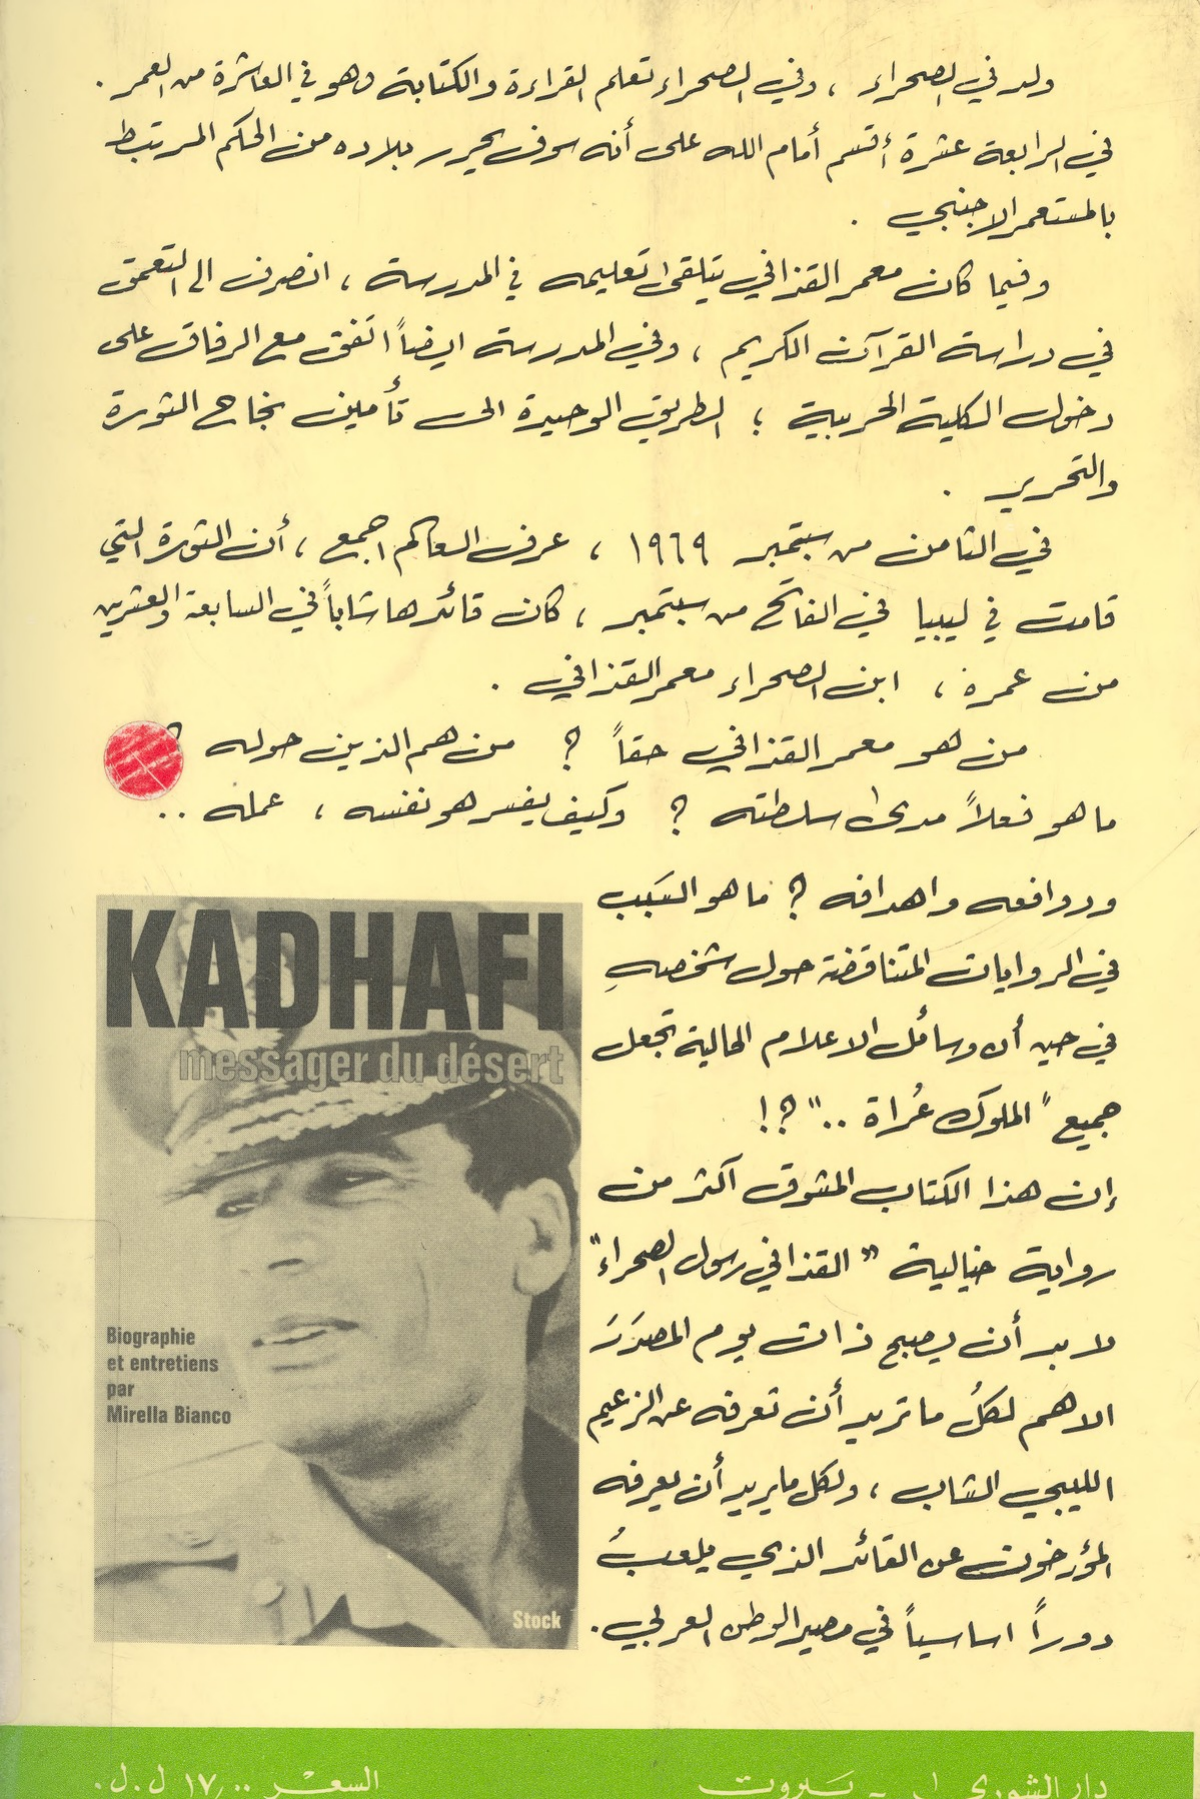 ولد في الصحراء ، وفي الصحراء تعلم القراءة والكتابة وهو في العاشرة من العمر .
في الرابعة عشرة أقسم أمام الله على أنه سوف يحرر بلاده من الحكم المرتبط
بالمستعمر الاجنبي .
وفيما كان معمر القذافي يتلقى تعليمه في المدرسة ، انصرف الى التعمق
في دراسة القرآن الكريم ، وفي المدرسة ايضاً اتفق مع الرفاق على
دخول الكلية الحربية ؛ الطريق الوحيدة الى تأمين نجاح الثورة
والتحرير .
في الثامن من سبتمبر ١٩٦٩ ، عرف العالم اجمع ، أن الثورة التي
قامت في ليبيا في الفاتح من سبتمبر ، كان قائدها شاباً في السابعة والعشرين
من عمره ، ابن الصحراء معمر القذافي .
من هو معمر القذافي حقاً ؟ من هم الذين حوله ؟
ما هو فعلاً مدى سلطته ؟ وكيف يفسر هو نفسه ، عمله ..
ودوافعه واهدافه ؟ ما هو السبب
في الروايات المتناقضة حول شخصه
في حين أن وسائل الاعلام الحالية تجعل
جميع " الملوك عُراة .. " ؟!
إن هذا الكتاب المشوق أكثر من
رواية خيالية " القذافي رسول الصحراء "
لا بد أن يصبح ذات يوم المصدَرَ
الاهم لكل ما تريد أن تعرفه عن الزعيم
الليبي الشاب ، ولكل ما يريد أن يعرفه
المؤرخون عن القائد الذي يلعبُ
دوراً اساسياً في مصير الوطن العربي .
KADHAFI
messager du désert
Biographie
et entretiens
par
Mirella Bianco
Stock
دار الشورى - بيروت
السعر ١٧٫٠٠ ل.ل.